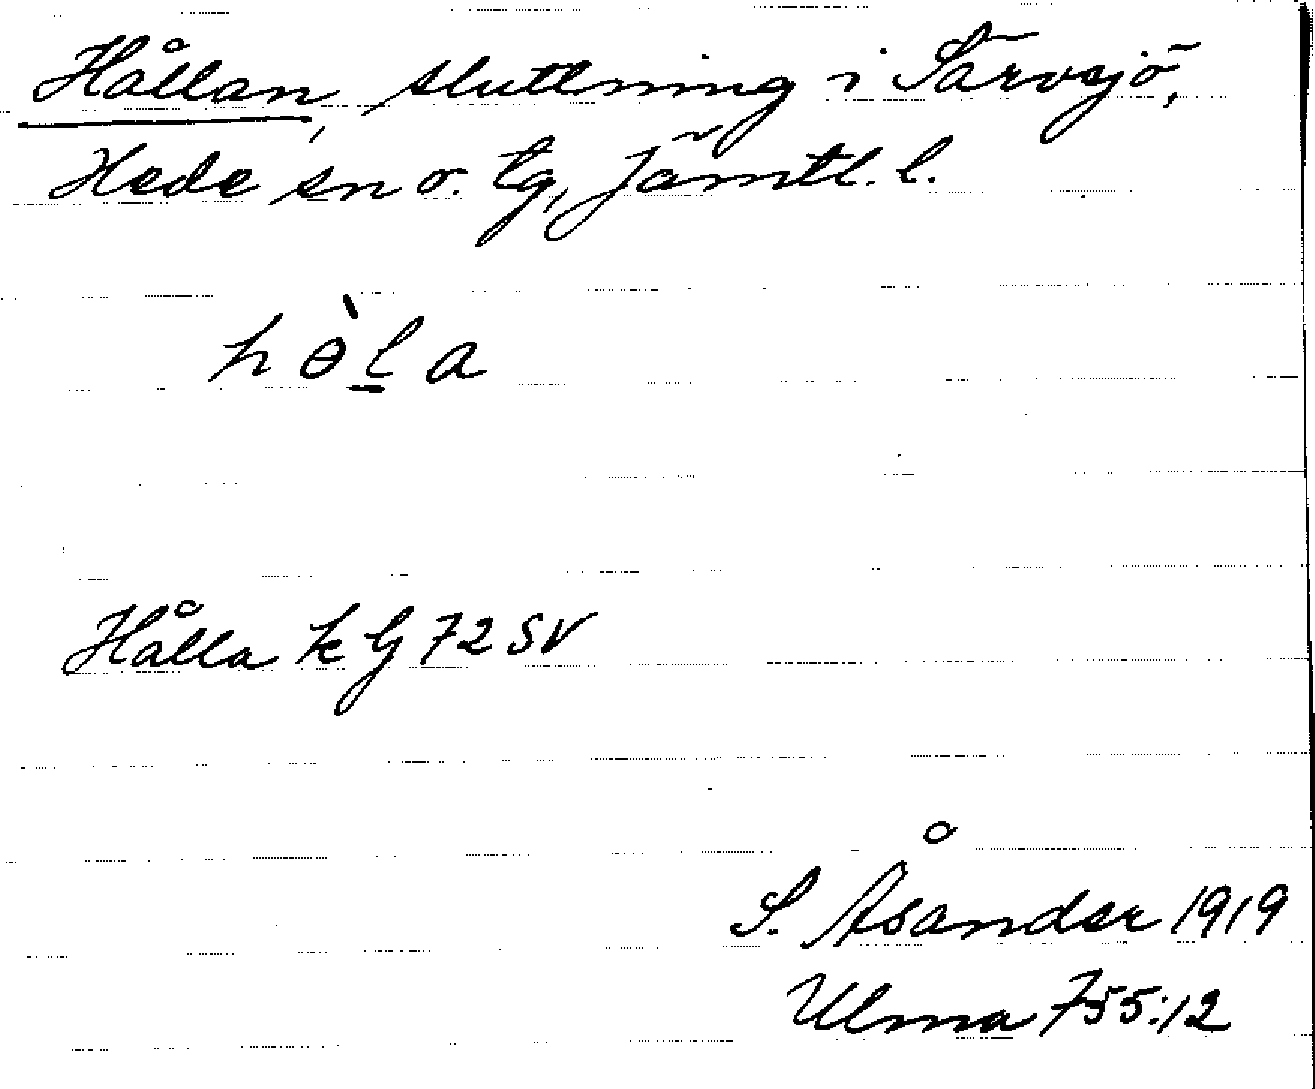 Hållan, sluttning i Särvsjö,
Hede sn o. tg, Jämtl. l.
hɵ̀l̲a
Hålla k G 72 SV
S. Åsander 1919
Ulma 755:12